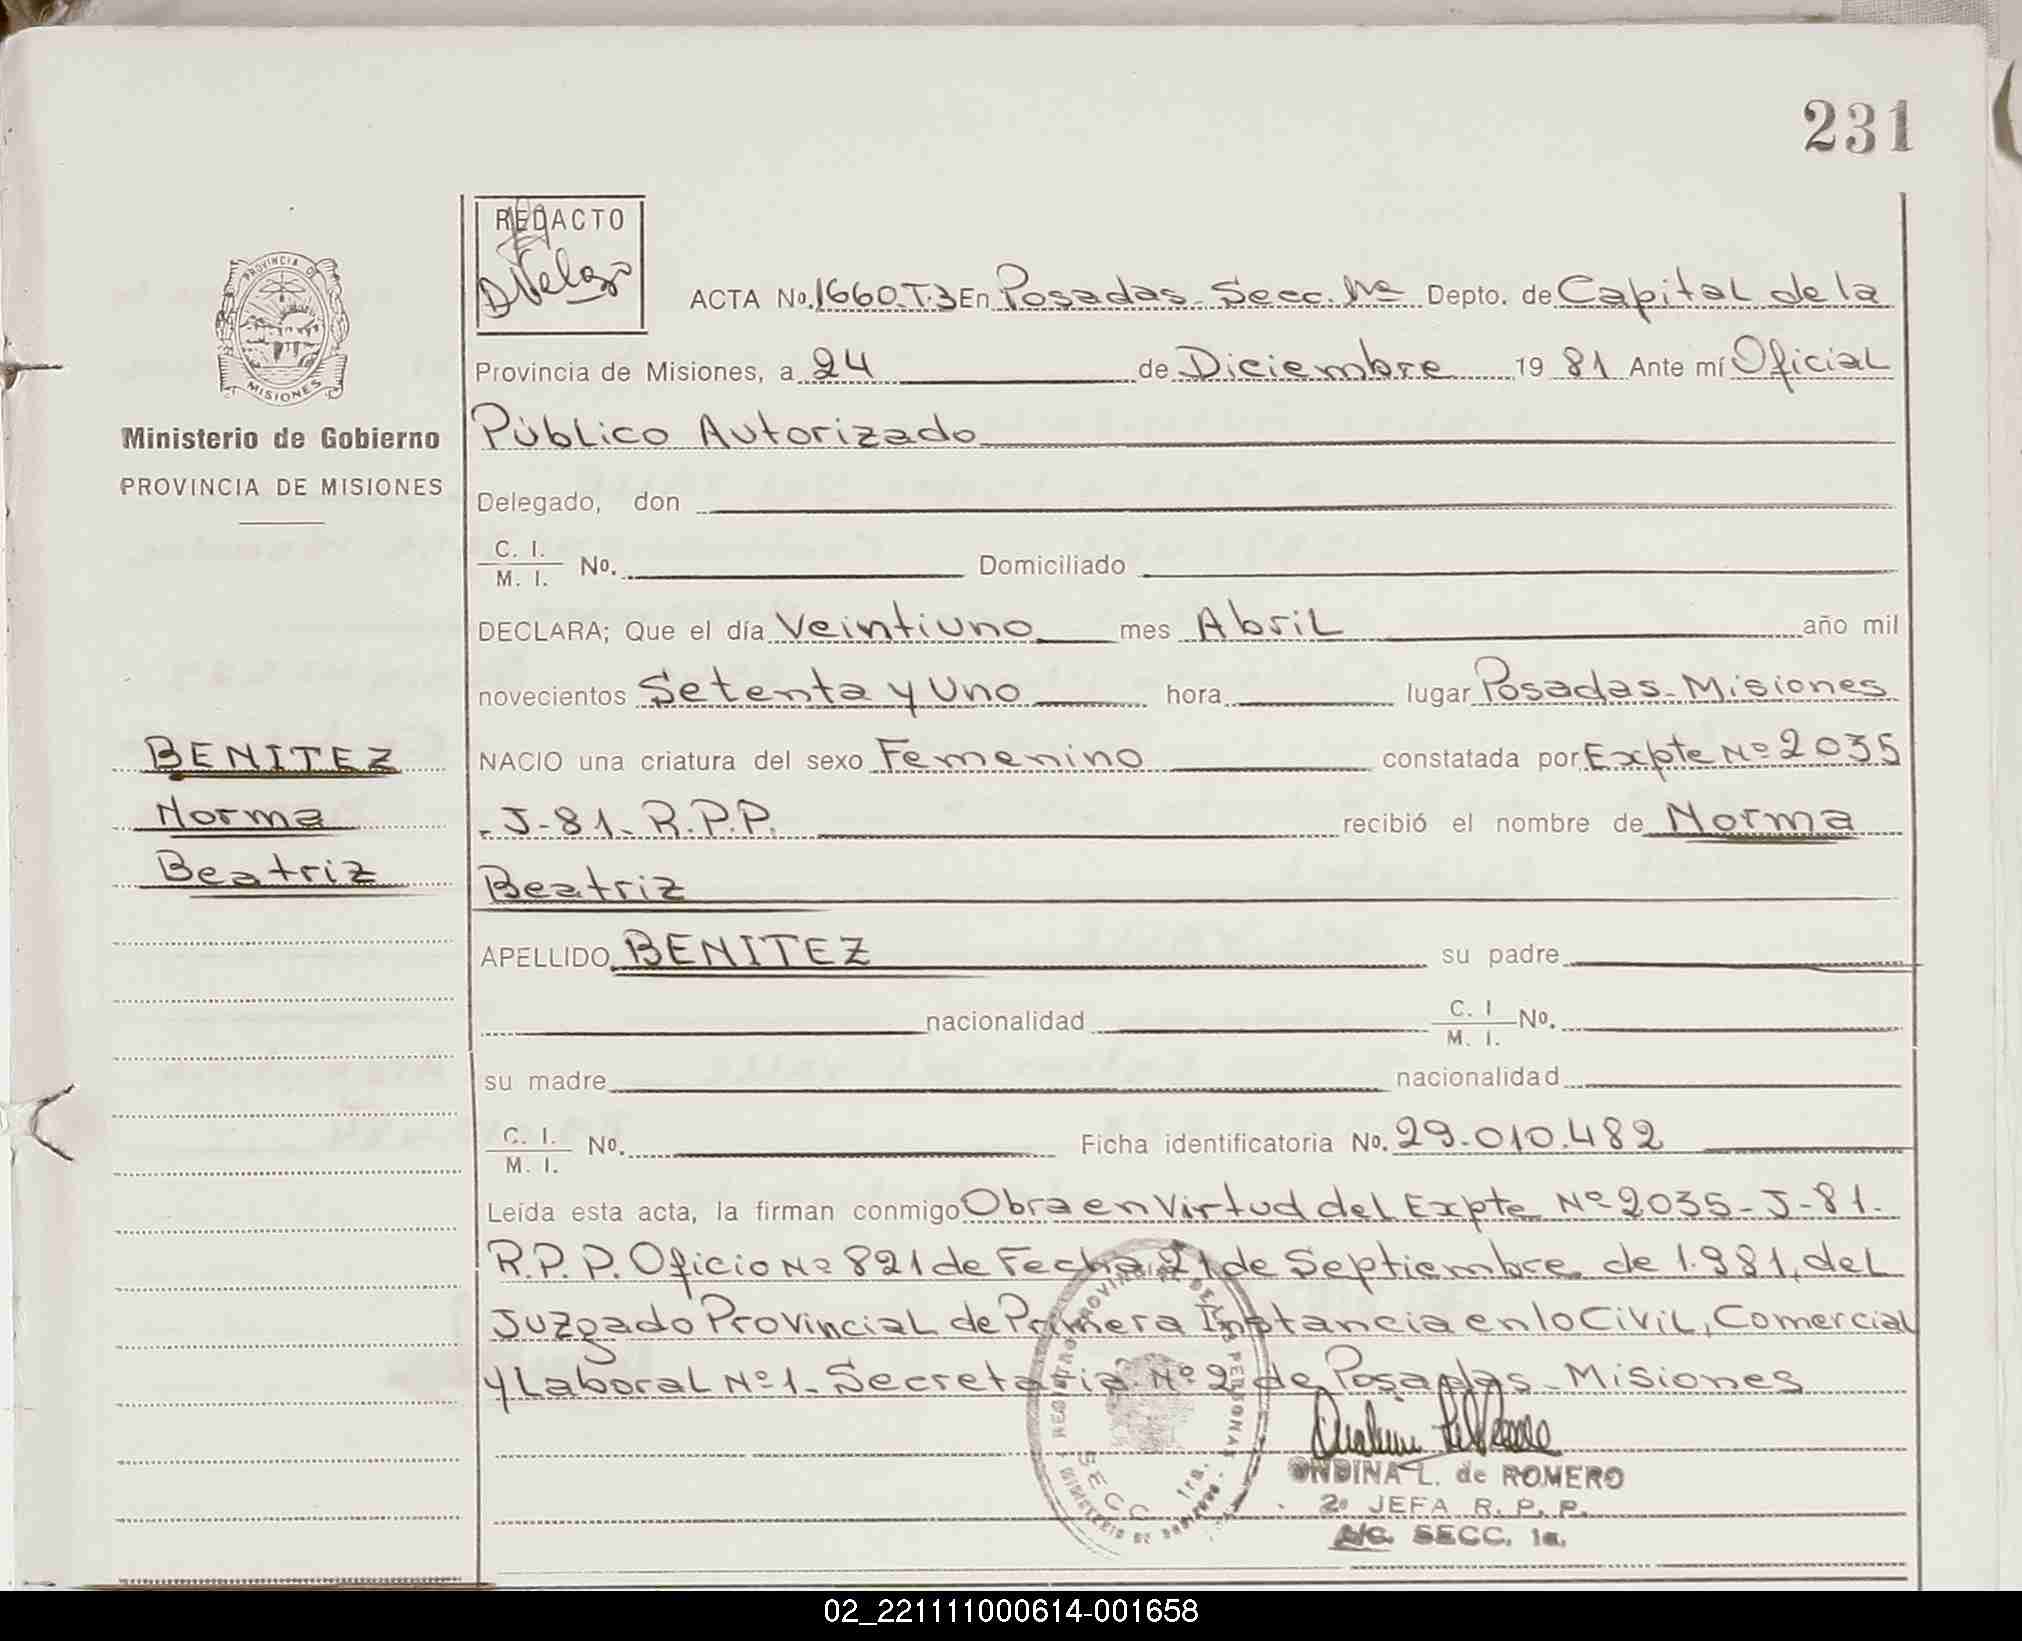 231
REDACTO
PROVINCIA DE
MISIONES
Ministerio de Gobierno
PROVINCIA DE MISIONES
BENITEZ
Norma
Beatriz
ACTA No. 1660.T.3 En Posadas - Secc. 1ra Depto. de Capital de la
Provincia de Misiones, a 24 de Diciembre 19 81 Ante mí Oficial
Público Autorizado
Delegado, don
C. I.
M. I. No. Domiciliado
DECLARA; Que el día Veintiuno mes Abril año mil
novecientos Setenta y Uno hora lugar Posadas - Misiones
NACIO una criatura del sexo Femenino constatada por Expte Nº 2035
- J - 81 - R.P.P. recibió el nombre de Norma
Beatriz
APELLIDO BENITEZ su padre
nacionalidad C. I M. I. No.
su madre nacionalidad
C. I. M. I. No. Ficha identificatoria No. 29.010.482
Leída esta acta, la firman conmigo Obra en Virtud del Expte Nº 2035 - J - 81.
R.P.P. Oficio Nº 821 de Fecha 21 de Septiembre de 1.981, del
Juzgado Provincial de Primera Instancia en lo Civil, Comercial
y Laboral Nº 1 - Secretaria Nº 2 de Posadas - Misiones
REGISTRO PROVINCIAL DE LAS PERSONAS
SECC. 1ra.
MINISTERIO DE GOBIERNO
ONDINA L. de ROMERO
2º JEFA R. P. P.
A/C. SECC. 1a.
02_221111000614-001658